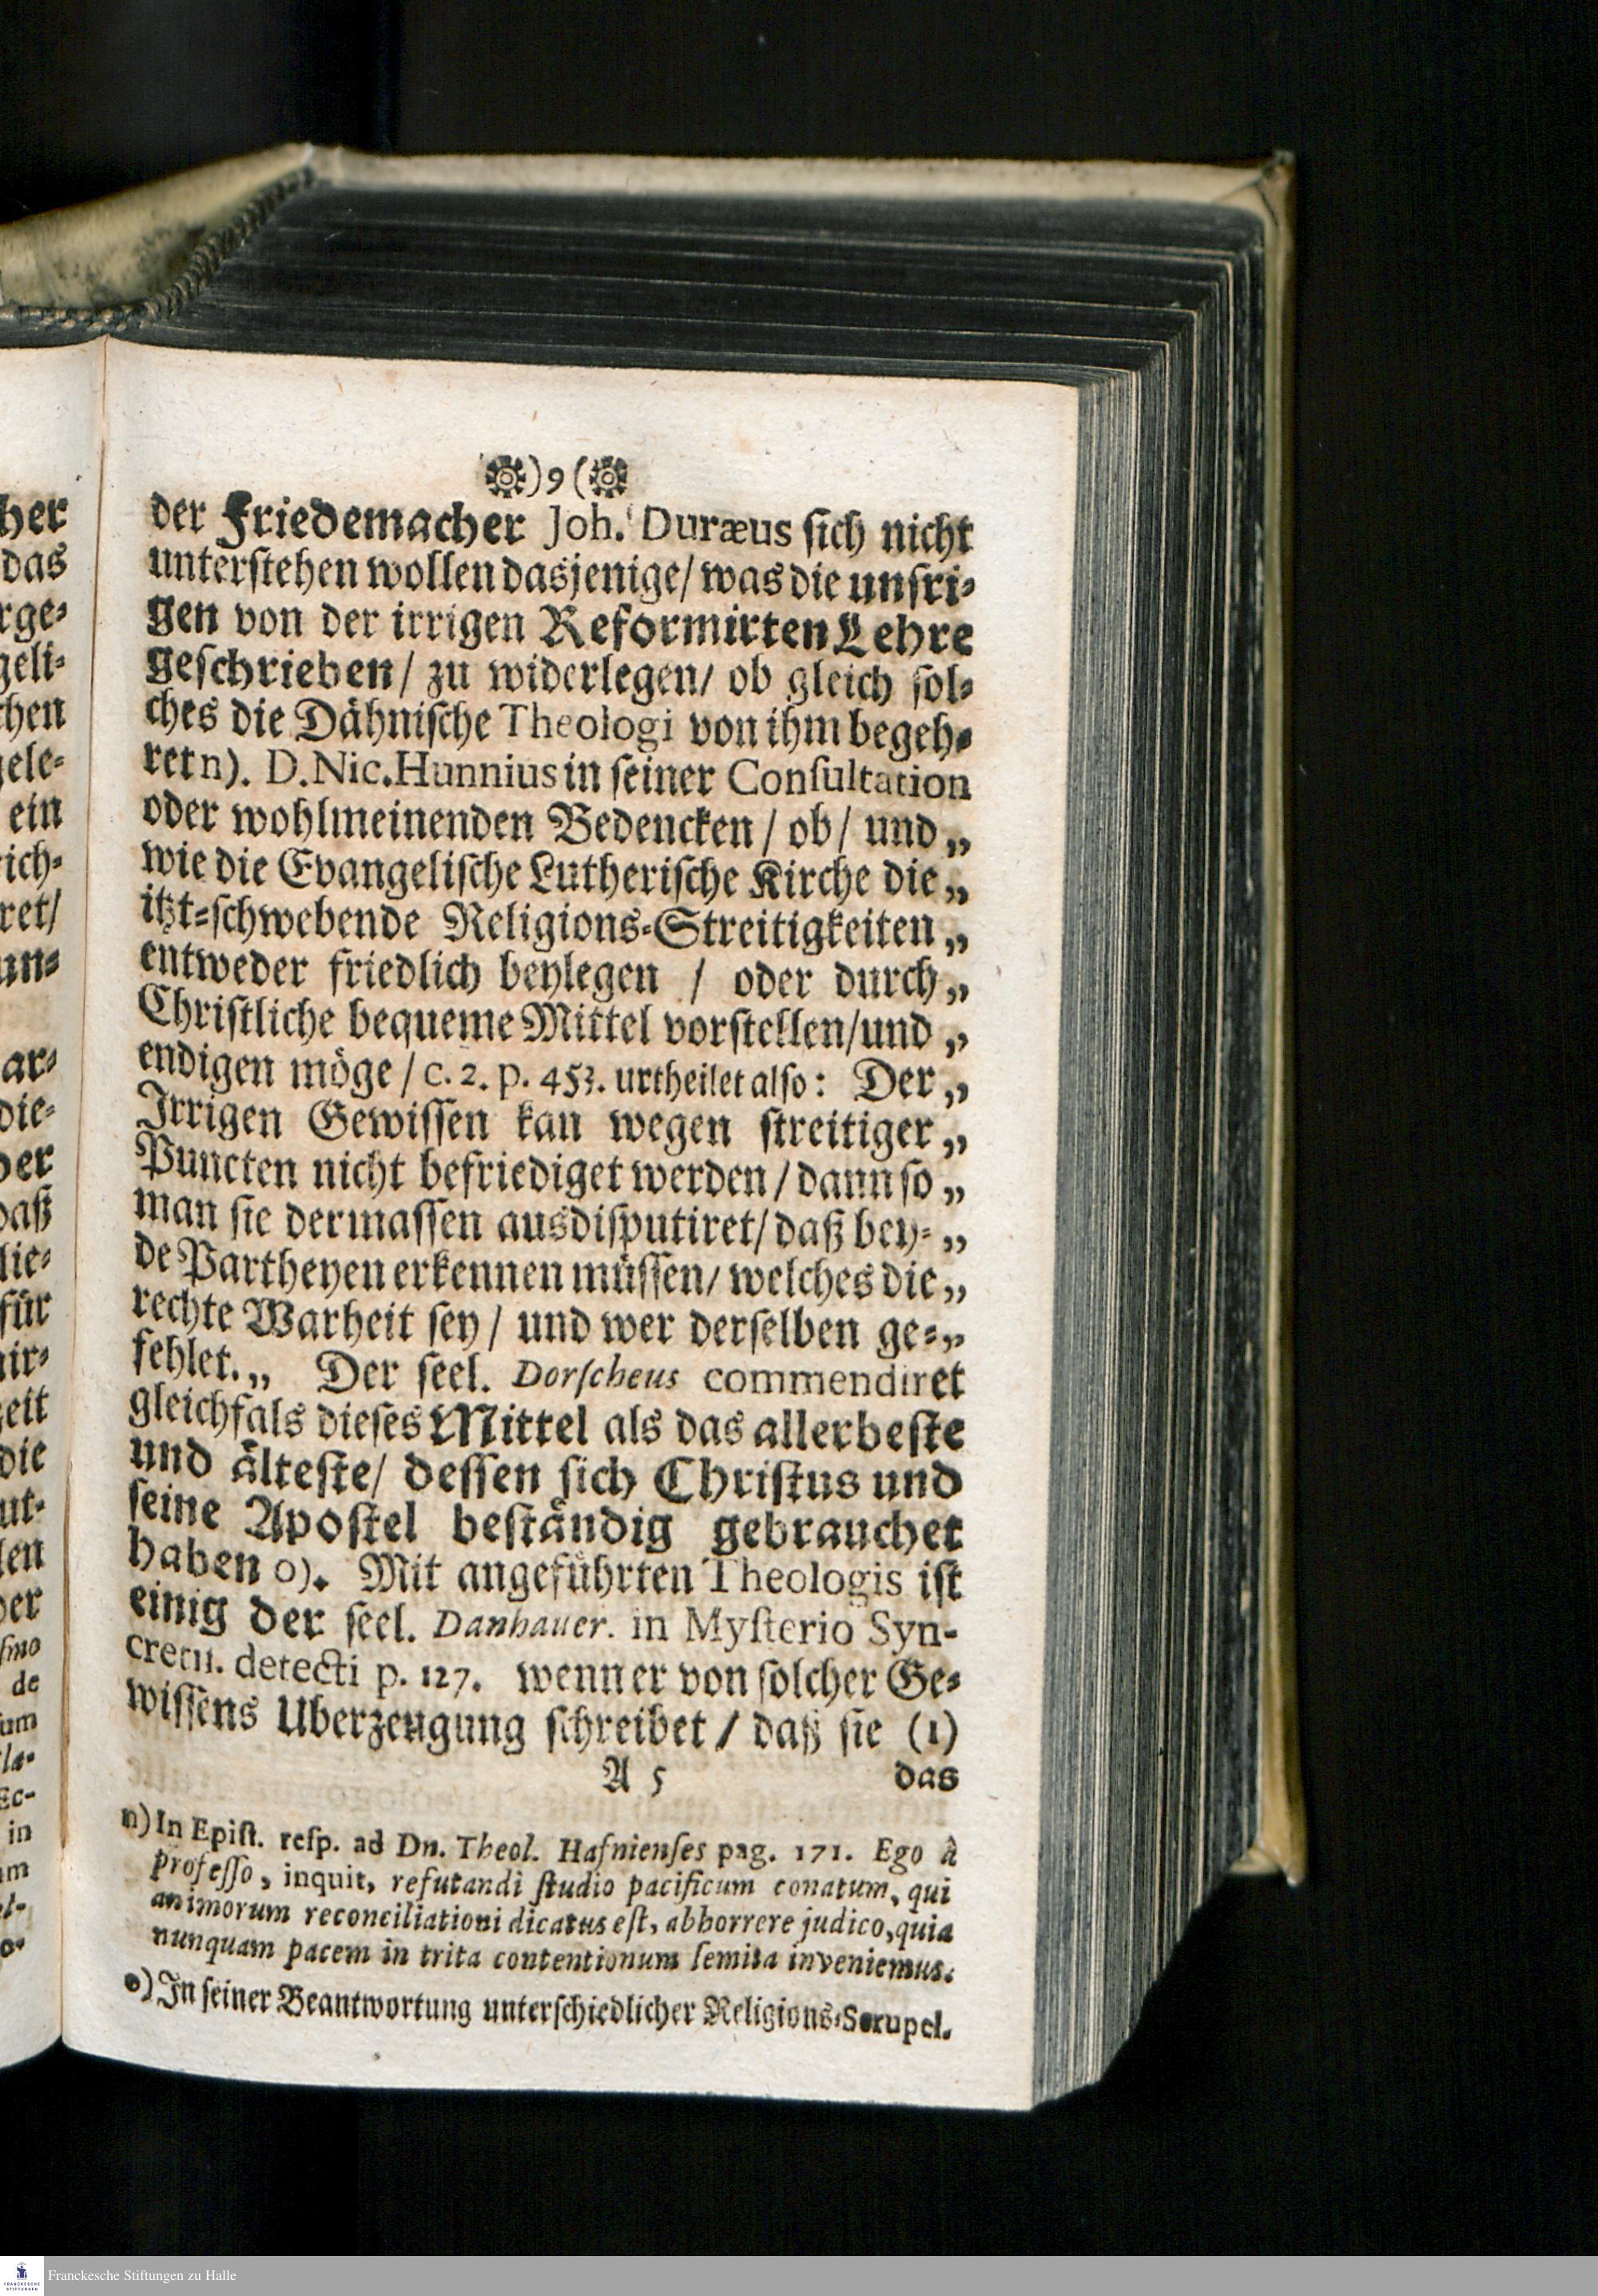 )9(
der Friedemacher Joh. Duræus sich nicht
unterstehen wollen dasjenige/ was die unsri-
gen von der irrigen Reformirten Lehre
geschrieben/ zu widerlegen/ ob gleich sol-
ches die Dähnische Theologi von ihm begeh-
ret n). D. Nic. Hunnius in seiner Consultation
oder wohlmeinenden Bedencken / ob / und „
wie die Evangelische Lutherische Kirche die „
itzt-schwebende Religions-Streitigkeiten „
entweder friedlich beylegen / oder durch „
Christliche bequeme Mittel vorstellen/und „
endigen möge / c. 2. p. 453. urtheilet also: Der „
Irrigen Gewissen kan wegen streitiger „
Puncten nicht befriediget werden / dann so „
man sie dermassen ausdisputiret/ daß bey- „
de Partheyen erkennen müssen/ welches die „
rechte Warheit sey / und wer derselben ge- „
fehlet. „ Der seel. Dorscheus commendiret
gleichfals dieses Mittel als das allerbeste
und älteste/ dessen sich Christus und
seine Apostel beständig gebrauchet
haben o). Mit angeführten Theologis ist
einig der seel. Danhauer. in Mysterio Syn-
cretii. detecti p. 127. wenn er von solcher Ge-
wissens Uberzeugung schreibet / daß sie (1)
A 5 das
n) In Epist. resp. ad Dn. Theol. Hafnienses pag. 171. Ego à
professo, inquit, refutandi studio pacificum conatum, qui
animorum reconciliationi dicatus est, abhorrere judico, quia
nunquam pacem in trita contentionum semita inveniemus.
o) In seiner Beantwortung unterschiedlicher Religions-Scrupel.
Franckesche Stiftungen zu Halle